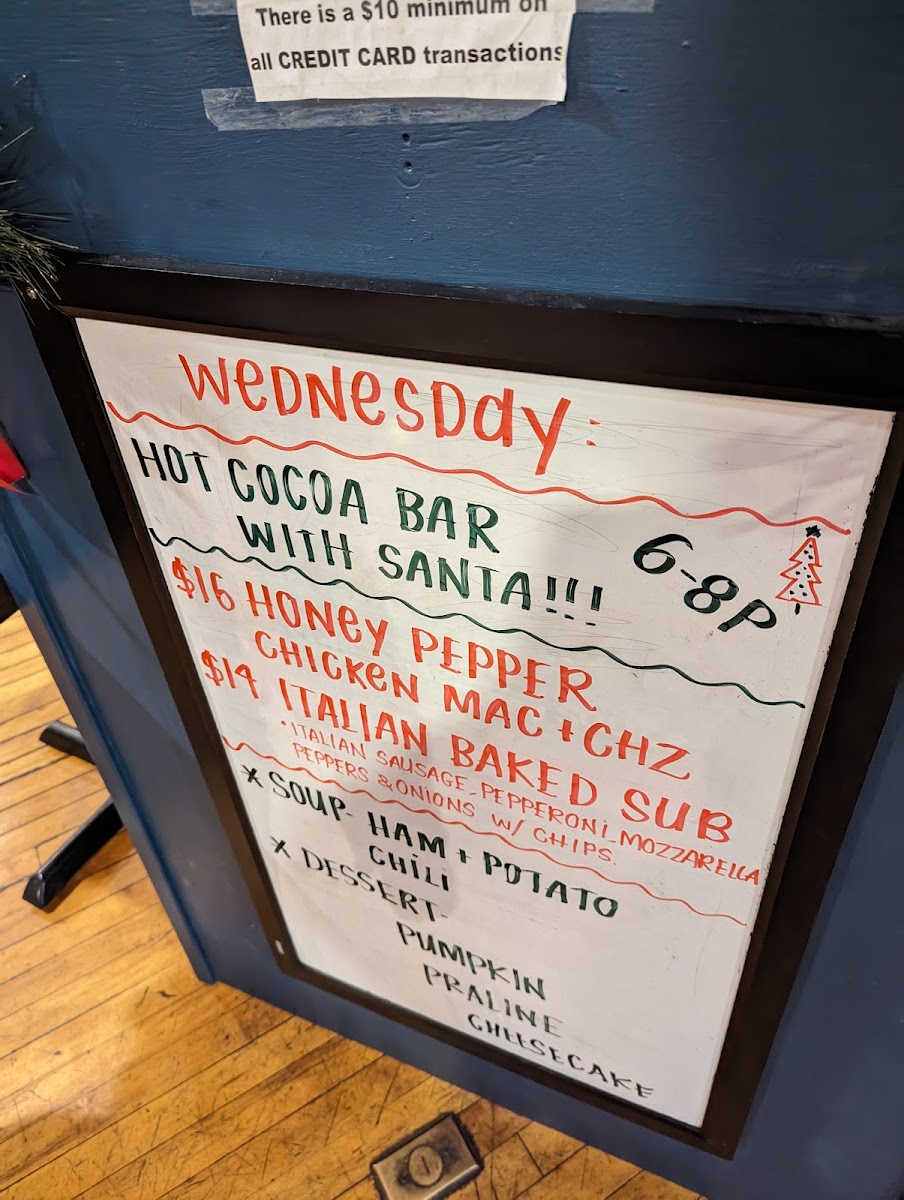 There is a $10 minimum on
all CREDIT CARD transactions
WEDNESDAY:
HOT COCOA BAR
WITH SANTA!!!
6-8P
$16 HONEY PEPPER
CHICKEN MAC + CHZ
$14 ITALIAN BAKED SUB
• ITALIAN SAUSAGE, PEPPERONI, MOZZARELLA
PEPPERS & ONIONS W/ CHIPS.
X SOUP- HAM + POTATO
CHILI
X DESSERT-
PUMPKIN
PRALINE
CHEESECAKE